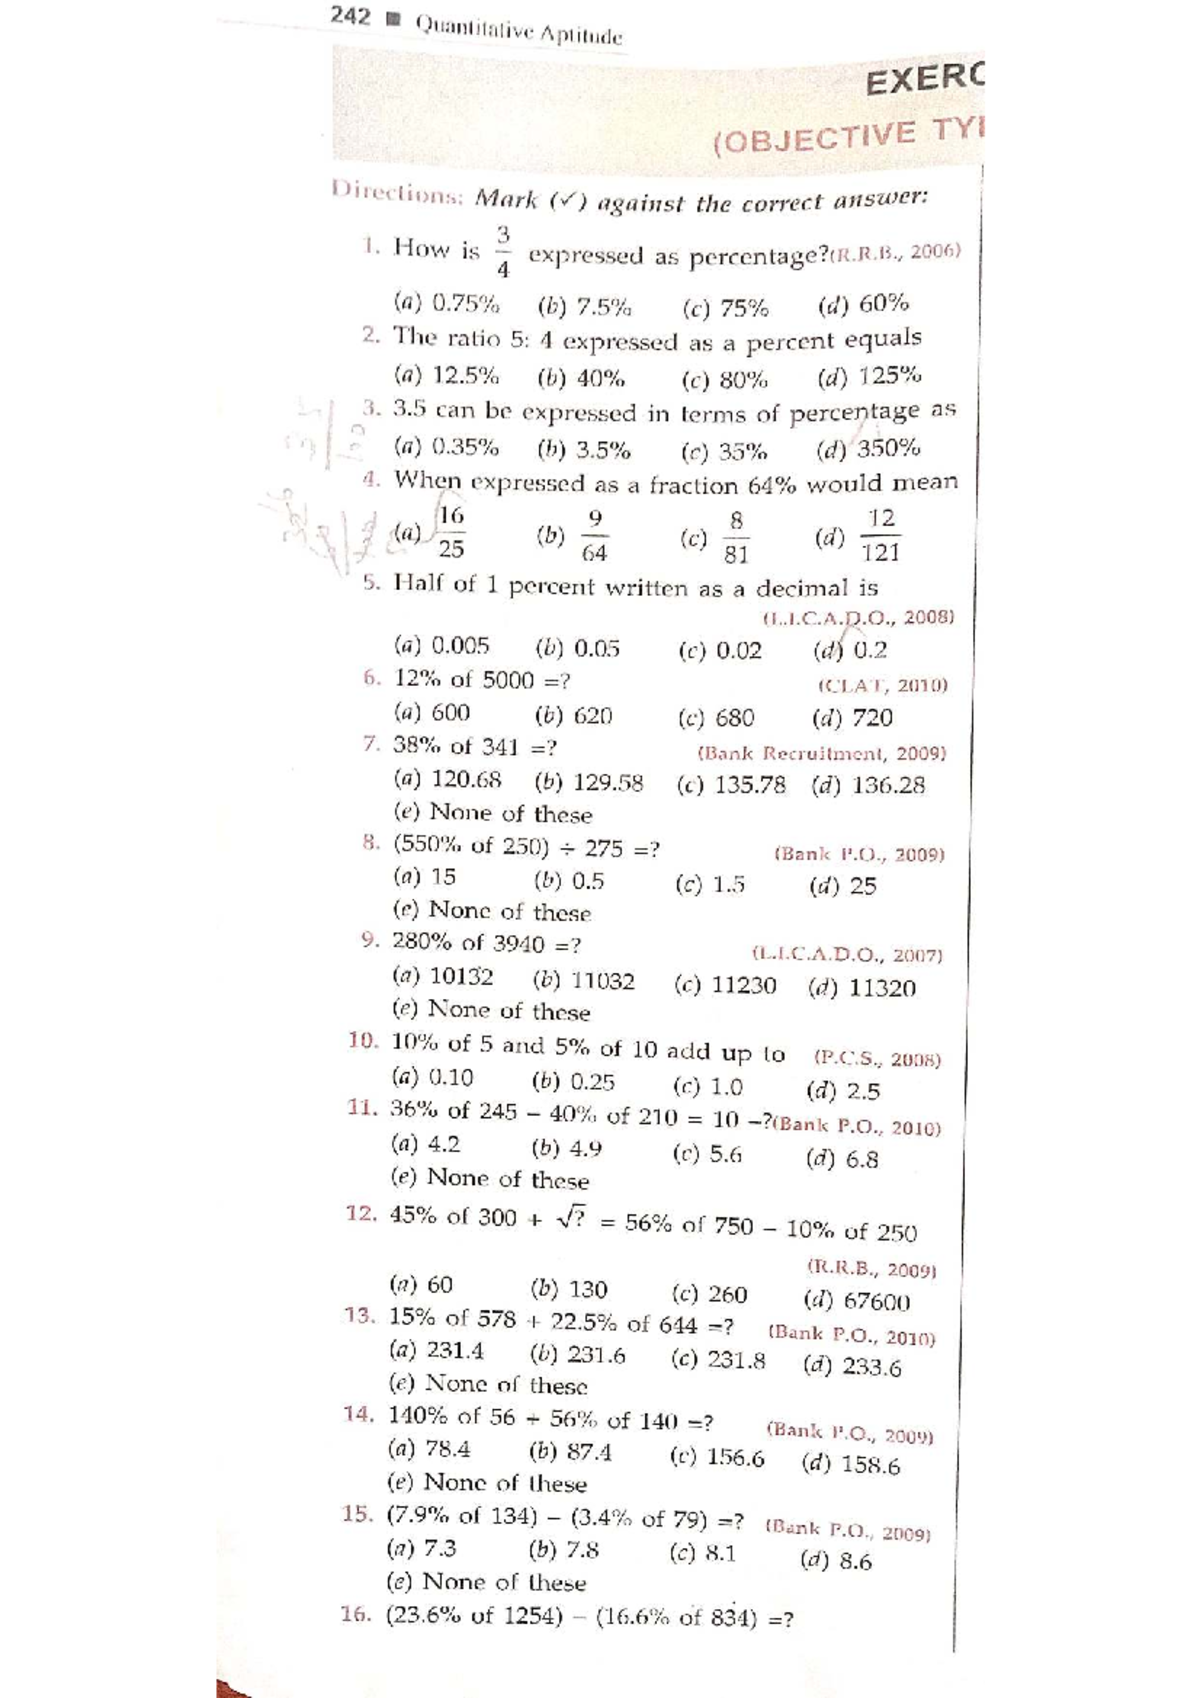 242 ■ Quantitative Aptitude
EXERC
(OBJECTIVE TYP
Directions: Mark (✓) against the correct answer:
1. How is 3/4 expressed as percentage? (R.R.B., 2006)
(a) 0.75% (b) 7.5% (c) 75% (d) 60%
2. The ratio 5: 4 expressed as a percent equals
(a) 12.5% (b) 40% (c) 80% (d) 125%
3. 3.5 can be expressed in terms of percentage as
(a) 0.35% (b) 3.5% (c) 35% (d) 350%
4. When expressed as a fraction 64% would mean
(a) 16/25 (b) 9/64 (c) 8/81 (d) 12/121
5. Half of 1 percent written as a decimal is
(L.I.C.A.D.O., 2008)
(a) 0.005 (b) 0.05 (c) 0.02 (d) 0.2
6. 12% of 5000 =? (CLAT, 2010)
(a) 600 (b) 620 (c) 680 (d) 720
7. 38% of 341 =? (Bank Recruitment, 2009)
(a) 120.68 (b) 129.58 (c) 135.78 (d) 136.28
(e) None of these
8. (550% of 250) ÷ 275 =? (Bank P.O., 2009)
(a) 15 (b) 0.5 (c) 1.5 (d) 25
(e) None of these
9. 280% of 3940 =? (L.I.C.A.D.O., 2007)
(a) 10132 (b) 11032 (c) 11230 (d) 11320
(e) None of these
10. 10% of 5 and 5% of 10 add up to (P.C.S., 2008)
(a) 0.10 (b) 0.25 (c) 1.0 (d) 2.5
11. 36% of 245 – 40% of 210 = 10 –? (Bank P.O., 2010)
(a) 4.2 (b) 4.9 (c) 5.6 (d) 6.8
(e) None of these
12. 45% of 300 + √? = 56% of 750 – 10% of 250
(R.R.B., 2009)
(a) 60 (b) 130 (c) 260 (d) 67600
13. 15% of 578 + 22.5% of 644 =? (Bank P.O., 2010)
(a) 231.4 (b) 231.6 (c) 231.8 (d) 233.6
(e) None of these
14. 140% of 56 + 56% of 140 =? (Bank P.O., 2009)
(a) 78.4 (b) 87.4 (c) 156.6 (d) 158.6
(e) None of these
15. (7.9% of 134) – (3.4% of 79) =? (Bank P.O., 2009)
(a) 7.3 (b) 7.8 (c) 8.1 (d) 8.6
(e) None of these
16. (23.6% of 1254) – (16.6% of 834) =?